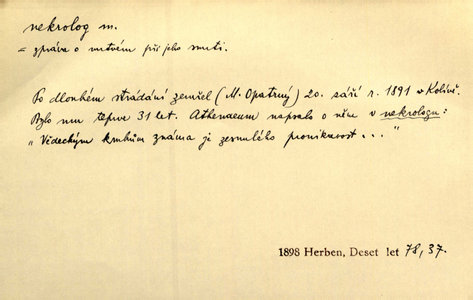 nekrolog m.
= zpráva o mrtvém při jeho smrti.
Po dlouhém strádání zemřel (M. Opatrný) 20. září r. 1891 v Kolíně.
Bylo mu teprve 31 let. Athenaeum napsalo o něm v nekrologu:
„Vědeckým kruhům známa je zesnulého pronikavost ... "
1898 Herben, Deset let 78, 37.